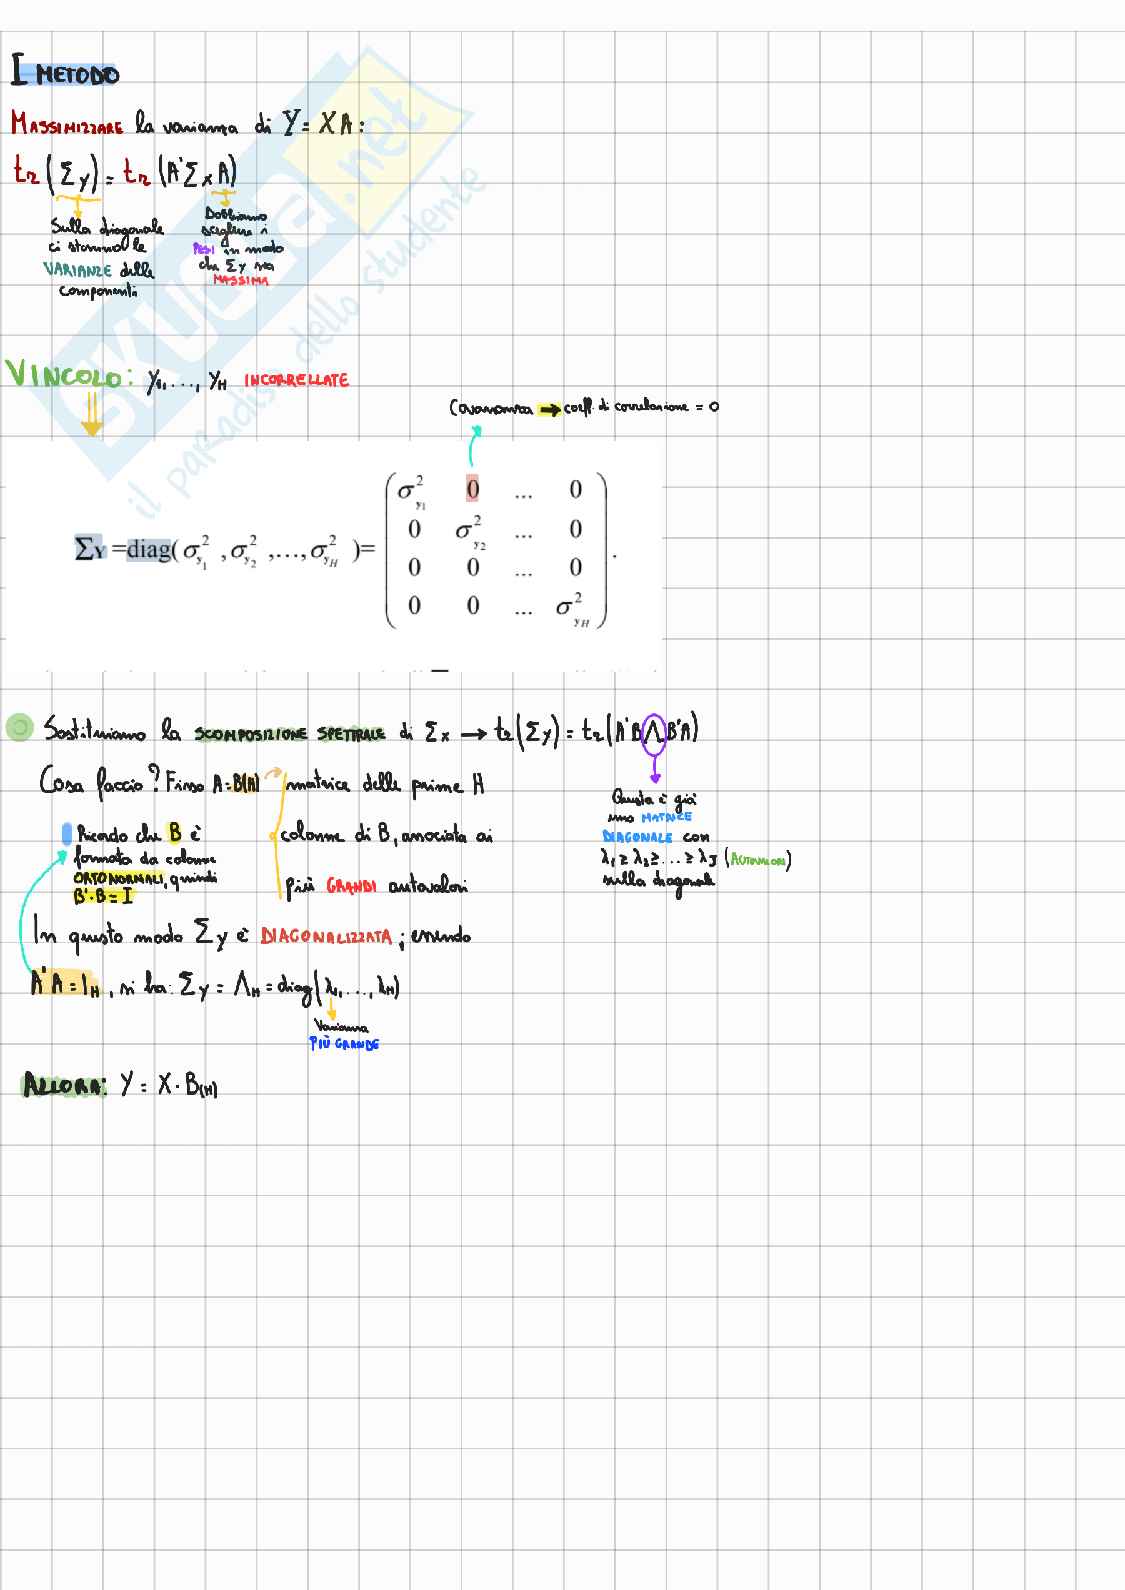 I METODO
MASSIMIZZARE la varianza di Y = XA:
tr(Σy) = tr(A'ΣxA)
Sulla diagonale
ci stanno le
VARIANZE delle
componenti
Dobbiamo
scegliere i
PESI in modo
che Σy sia
MASSIMA
VINCOLO: y1, ..., yH INCORRELATE
Covarianza → coeff. di correlazione = 0
ΣY =diag(σ²y1 ,σ²y2 ,...,σ²yH )=
σ²y1 0 ... 0
0 σ²y2 ... 0
0 0 ... 0
0 0 ... σ²yH
.
Sostituiamo la SCOMPOSIZIONE SPETTRALE di Σx → tr(Σy) = tr(A'BΛB'A)
Questa è già
una MATRICE
DIAGONALE con
λ1 ≥ λ2 ≥ ... ≥ λJ (AUTOVALORI)
sulla diagonale
Cosa faccio? Fisso A = B(H) → matrice delle prime H
colonne di B, associata ai
più GRANDI autovalori
Ricordo che B è
formata da colonne
ORTONORMALI, quindi
B'·B = I
In questo modo Σy è DIAGONALIZZATA; essendo
A'A = IH, si ha: Σy = ΛH = diag(λ1, ..., λH)
Varianza
PIÙ GRANDE
ALLORA: Y = X · B(H)
SKUOLA.net
il paradiso dello studente